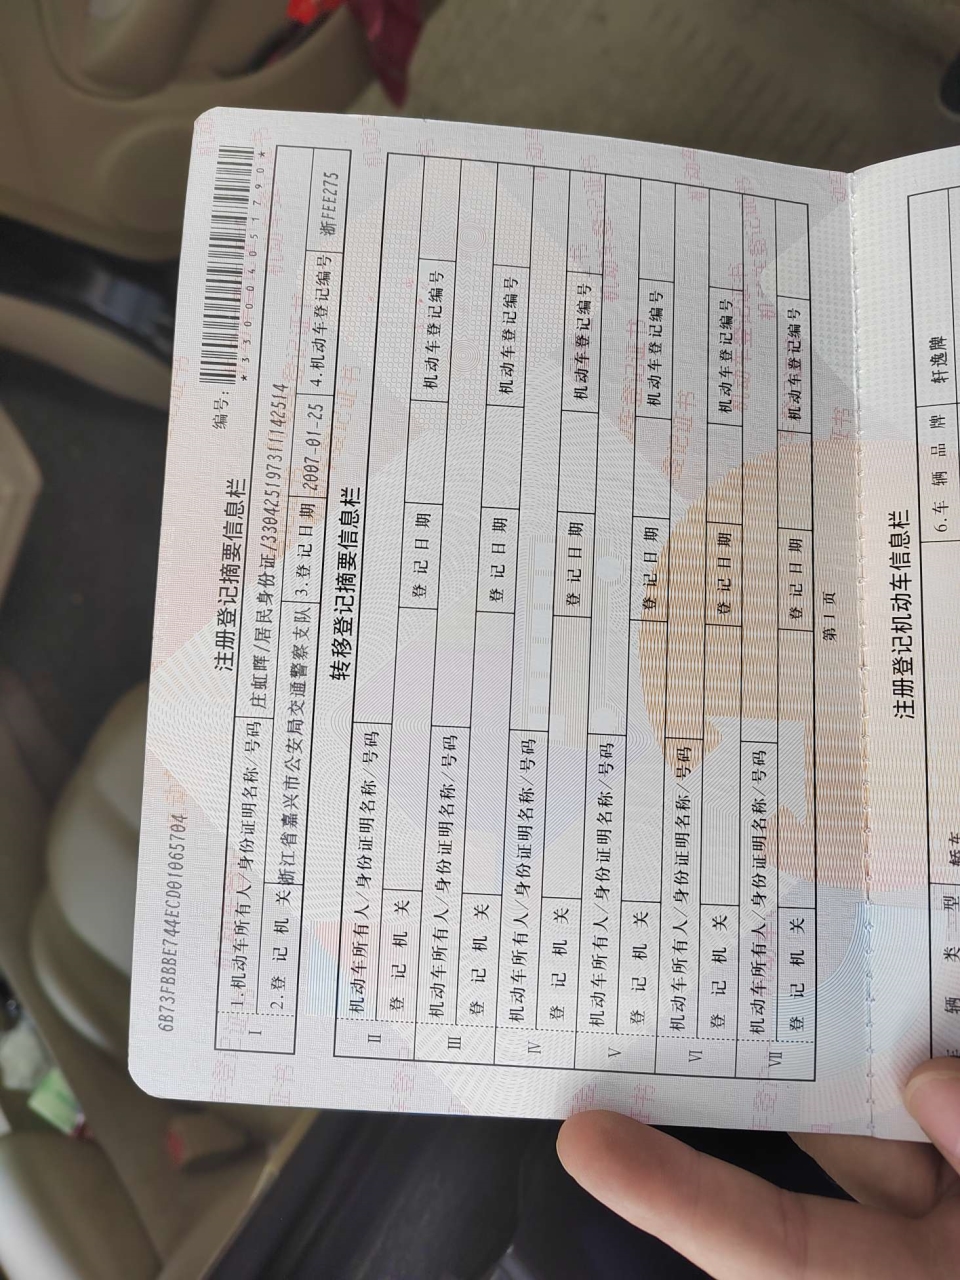 6B73FBBBE744ECD01065704
注册登记摘要信息栏
编号:
*330004051790*
Ⅰ
1.机动车所有人/身份证明名称/号码 庄虹晖/居民身份证/330425197311142514
2.登记机关 浙江省嘉兴市公安局交通警察支队 3.登记日期 2007-01-25 4.机动车登记编号 浙FEE275
转移登记摘要信息栏
Ⅱ
机动车所有人/身份证明名称/号码
登记机关 登记日期 机动车登记编号
Ⅲ
机动车所有人/身份证明名称/号码
登记机关 登记日期 机动车登记编号
Ⅳ
机动车所有人/身份证明名称/号码
登记机关 登记日期 机动车登记编号
Ⅴ
机动车所有人/身份证明名称/号码
登记机关 登记日期 机动车登记编号
Ⅵ
机动车所有人/身份证明名称/号码
登记机关 登记日期 机动车登记编号
Ⅶ
机动车所有人/身份证明名称/号码
登记机关 登记日期 机动车登记编号
第1页
注册登记机动车信息栏
车辆类型 轿车 6.车辆品牌 轩逸牌